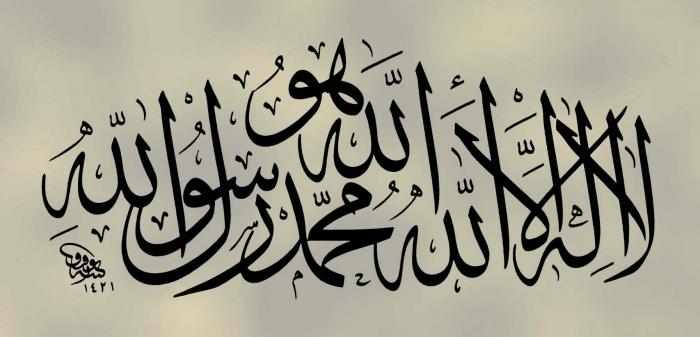 هو
الله
لا إله إلا الله محمد رسول الله
١٤٢١